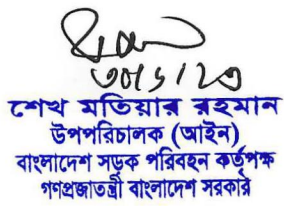 ৩০/১/২৩
শেখ মতিয়ার রহমান
উপপরিচালক (আইন)
বাংলাদেশ সড়ক পরিবহন কর্তৃপক্ষ
গণপ্রজাতন্ত্রী বাংলাদেশ সরকার